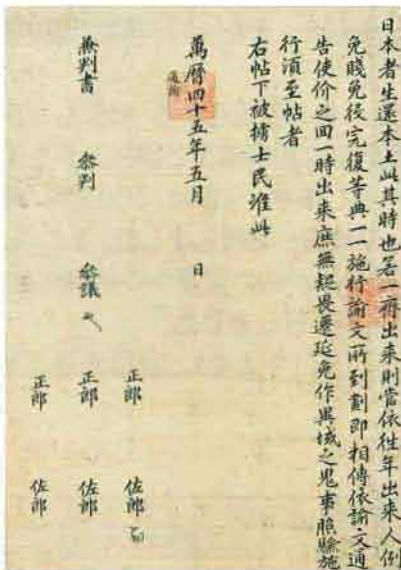 日本者生還本土此其時也若一齊出來則當依往年出來人例
免賤免役完復等典一一施行諭文所到劃即相傳依諭文通
告使价之回一時出來庶無疑畏遷延免作異域之鬼事照驗施
行須至帖者
右帖下被擄士民准此
萬曆四十五年五月 日
兼判書 參判 參議
正郎 正郎 正郎
佐郎 佐郎 佐郎